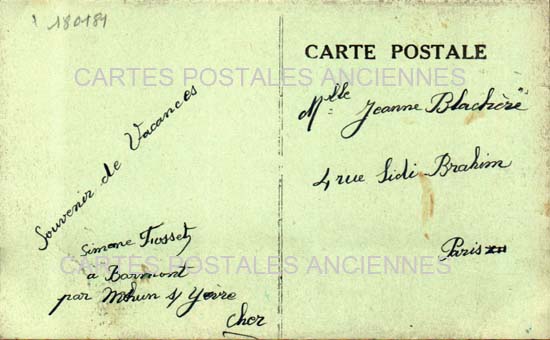 180184
CARTE POSTALE
CARTES POSTALES ANCIENNES
Souvenir de Vacances
Simone Tusset
a Barmont
par Mhun s/ Yèvre
Cher
Mlle Jeanne Blachère
4 rue Sidi Brahim
Paris XII
CARTES POSTALES ANCIENNES